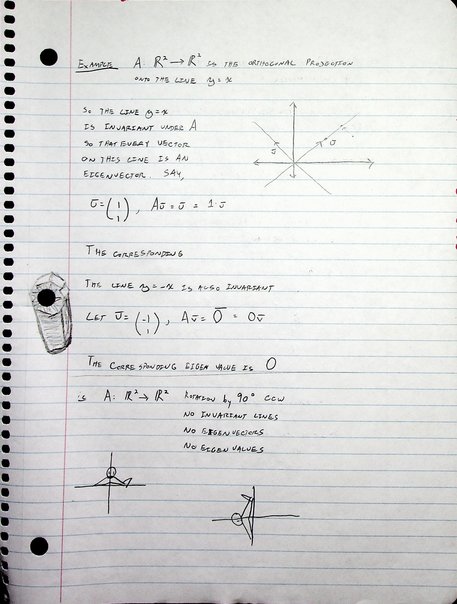 EXAMPLE A: ℝ² → ℝ² IS THE ORTHOGONAL PROJECTION
ONTO THE LINE y = x
SO THE LINE y = x
IS INVARIANT UNDER A
SO THAT EVERY VECTOR
ON THIS LINE IS AN
EIGENVECTOR. SAY,
v̄ = (1 1), Av̄ = v̄ = 1·v̄
THE CORRESPONDING
THE LINE y = -x IS ALSO INVARIANT
LET v̄ = (-1 1), Av̄ = 0̄ = 0v̄
THE CORRESPONDING EIGEN VALUE IS 0
A: ℝ² → ℝ² ROTATION by 90° CCW
NO INVARIANT LINES
NO EIGENVECTORS
NO EIGENVALUES